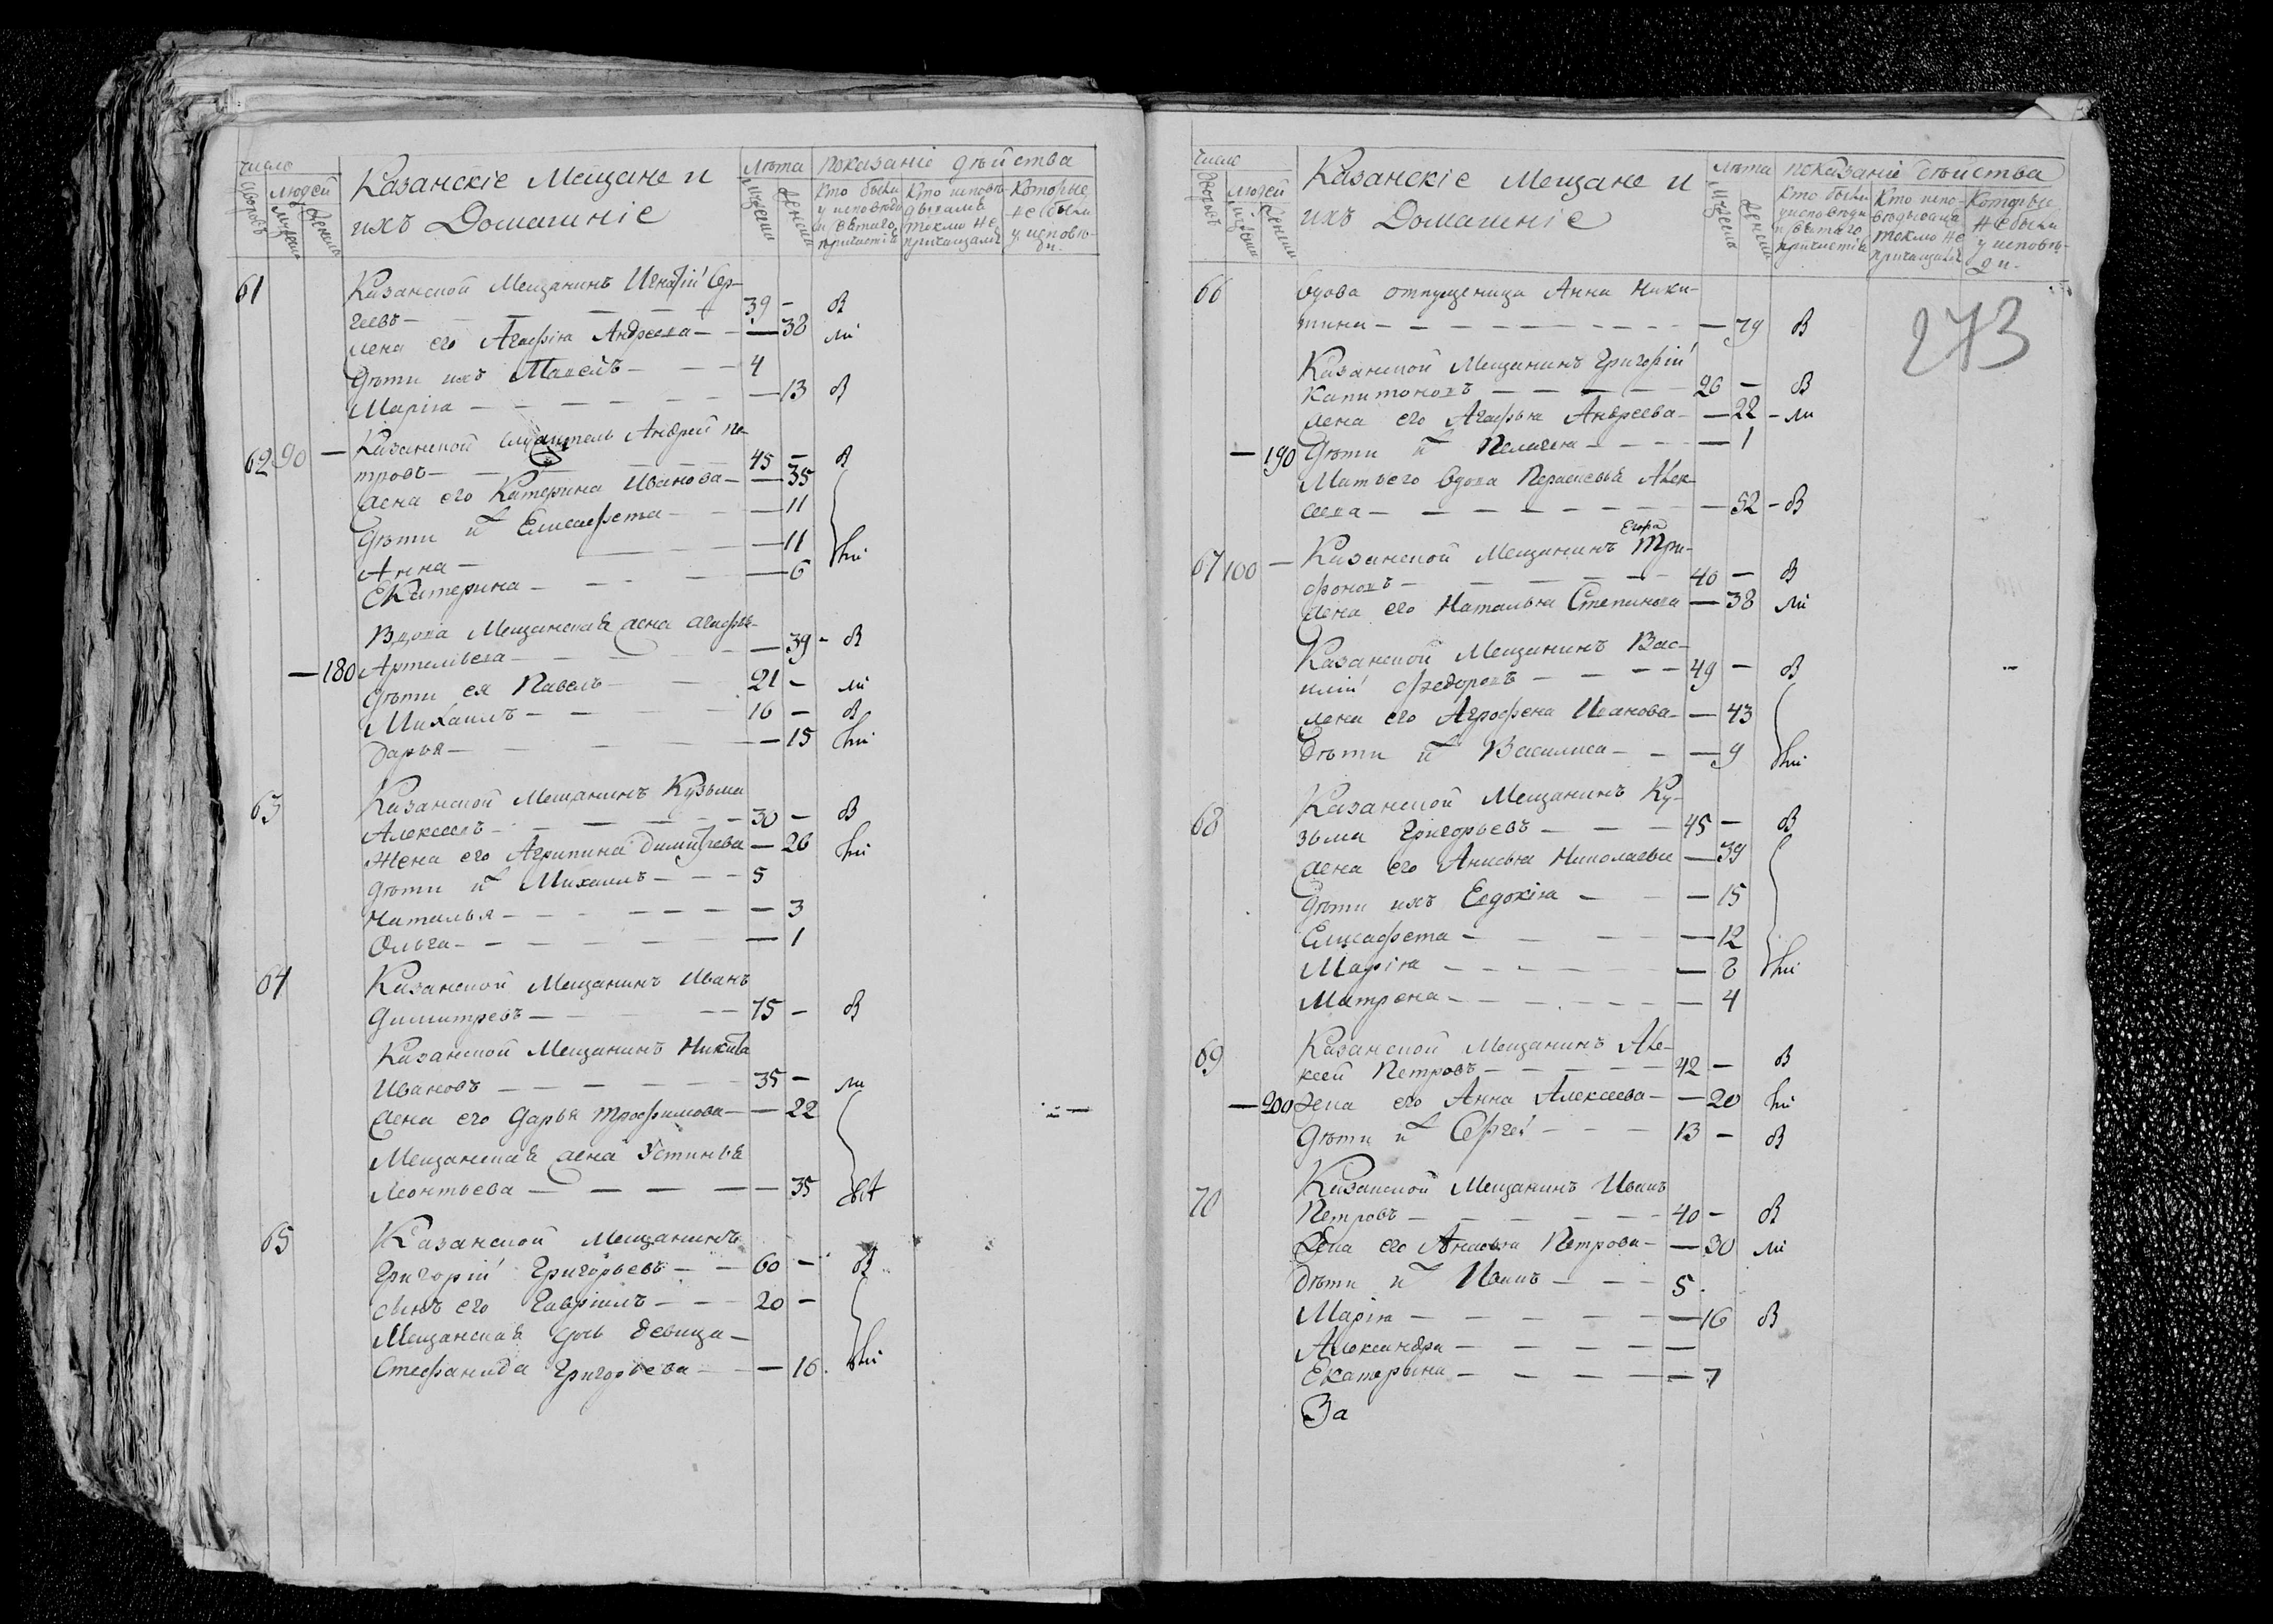 число
дворовъ
людей
мужеска
женска
Казанскіе Мещане и
ихъ Домашніе
лѣта
мужеска
женска
показаніе дѣйства
кто были
у исповѣди
и святаго
причастія
кто исповѣ
дывался
токмо не
причащался
которые
не были
у исповѣ-
ди
61
Казанской Мещанинъ Игнатій Сер-
геевъ — 39 — В
жена его Агафіа Андреева — 38 ли
Дѣти ихъ Павелъ — 4
Маріа — 13 В
62 90 — Казанской Андрей Пе
тровъ — 45 — В
жена его Катерина Иванова — 35
Дѣти и Елисафета — 11
Анна — 11
Екатерина — 6
Вдова Мещанская жена Агафья
— 180 Артемьева — 39 - В
дѣти ея Павелъ — 21 — ли
Михаилъ — 16 — В
Дарья — 15
63
Казанской Мещанинъ Кузьма
Алексеевъ — 30 — В
жена его Агрипина Димитрева — 26
дѣти и Михаилъ — 5
Наталья — 3
Ольга — 1
64
Казанской Мещанинъ Иванъ
Димитревъ — 75 — В
Казанской Мещанинъ Никита
Ивановъ — 35 — ли
жена его Дарья Трофимова — 22
Мещанская жена Устинья
Леонтьева — 35
65
Казанской Мещанинъ
Григорій Григорьевъ — 60 — В
сынъ его Гавріилъ — 20 —
Мещанская дочь девица
Стефанида Григорьева — 16
число
дворовъ
людей
мужеска
женска
Казанскіе Мещане и
ихъ Домашніе
лѣта
мужеска
женска
показаніе дѣйства
Кто были
у исповѣди
и святаго
причастія
Кто испо-
вѣдывался
токмо не
причащался
Которые
не были
у исповѣ-
ди
273
66
Вдова отпущеница Анна Ники-
тина — 79 В
Казанской Мещанинъ Григорій
Капитоновъ — 26 — В
жена его Агафья Андреева — 22 - ли
— 190 Дѣти и Пелагея — 1
Мать его вдова Парасковья Алек-
сеева — 52 - В
Егоръ
67 100 — Казанской Мещанинъ Три-
фоновъ — 40 — В
жена его Наталья Степанова — 38 ли
Казанской Мещанинъ Вас-
илій Федоровъ — 49 — В
жена его Агрофена Иванова — 43
Дѣти и Василиса — 9
68
Казанской Мещанинъ Ку-
зьма Григорьевъ — 45 — В
жена его Анисья Николаева — 39
Дѣти ихъ Евдокіа — 15
Елисафета — 12
Маріа — 8
Матрена — 4
69
Казанской Мещанинъ Але-
ксей Петровъ — 42 — В
— 200 жена его Анна Алексеева — 20
Дѣти и Сергей — 13 — В
70
Казанской Мещанинъ Иванъ
Петровъ — 40 — В
жена его Анисья Петрова — 30 ли
Дѣти и Иванъ — 5
Маріа — 16 В
Александра —
Екатерина — 7
За